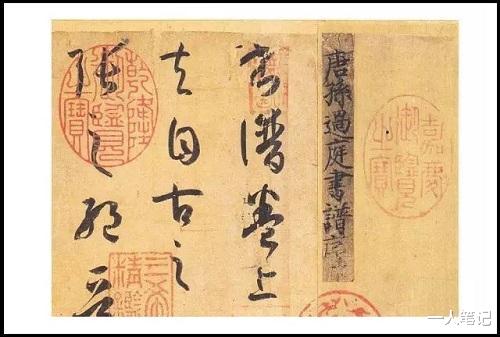 嘉慶御覽之寶
唐孫過庭書譜序
書譜卷上
夫自古之
張之絕晉
乾隆御覽之寶
一人笔记